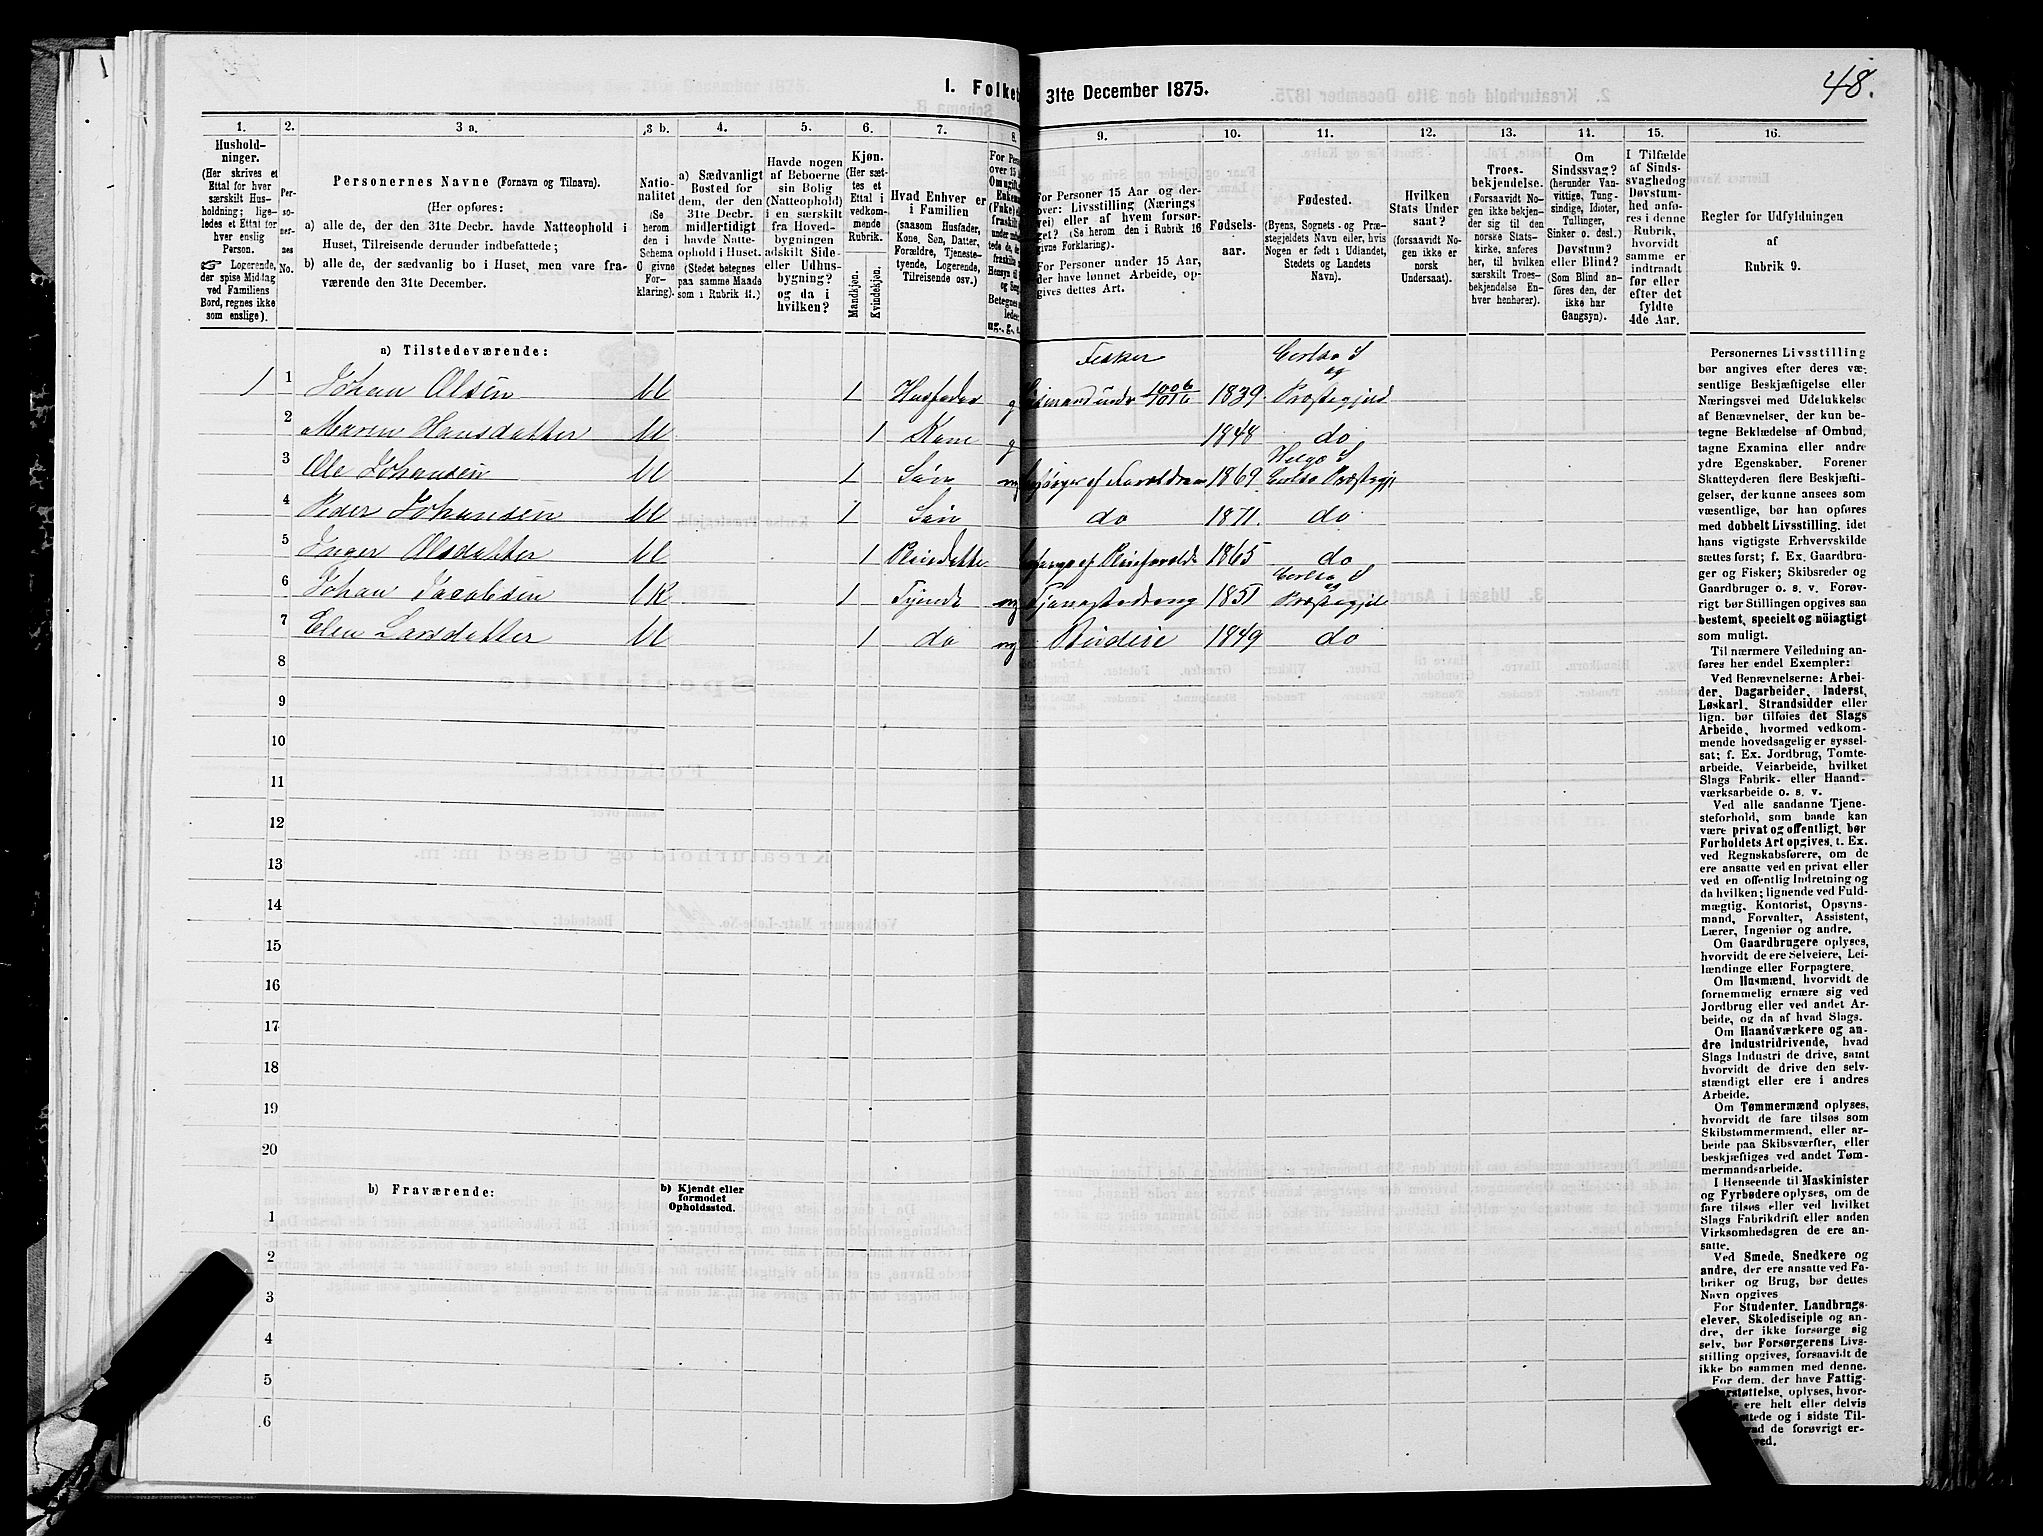 48.
1. Folket 31te December 1875.
1. 2. 3 a. 3 b. 4. 5. 6. 7. 8. 9. 10. 11. 12. 13. 14. 15. 16.
Hushold-
ninger.
(Her skrives et
Ettal for hver
særskilt Hus-
holdning; lige-
ledes et Ettal for
hver enslig
Person.
☞ Logerende,
der spise Middag
ved Familiens
Bord, regnes ikke
som enslige).
Per-
so-
ner-
nes
No.
Personernes Navne (Fornavn og Tilnavn).
(Her opføres:
a) alle de, der den 31te Decbr. havde Natteophold i
Huset, Tilreisende derunder indbefattede;
b) alle de, der sædvanlig bo i Huset, men vare fra-
værende den 31te December.
Natio-
nalitet
(Se
herom
den i
Schema
C givne
For-
klaring).
a) Sædvanligt
Bosted for
dem, der den
31te Decbr.
midlertidigt
havde Natte-
ophold i Huset.
(Stedet betegnes
paa samme Maade
som i Rubrik 11.)
Havde nogen
af Beboerne
sin Bolig
(Natteophold)
i en særskilt
fra Hoved-
bygningen
adskilt Side-
eller Udhus-
bygning?
og da i
hvilken?
Kjøn.
(Her sæt-
tes et
Ettal i
vedkom-
mende
Rubrik.
Mandkjøn.
Kvindekjøn.
Hvad Enhver er
i Familien
(saasom Husfader,
Kone, Søn, Datter,
Forældre, Tjeneste-
tyende, Logerende,
Tilreisende osv.)
For Personer 15 Aar og der-
over: Livsstilling (Nærings-
vei) eller af hvem forsør-
get? (Se herom den i Rubrik 16
givne Forklaring).
For Personer under 15 Aar,
der have lønnet Arbeide, op-
gives dettes Art.
Fødsels-
aar.
Fødested.
(Byens, Sognets- og Præ-
stegjeldets Navn eller, hvis
Nogen er født i Udlandet,
Stedets og Landets
Navn).
Hvilken
Stats Under
saat?
(forsaavidt No-
gen ikke er
norsk
Undersaat).
Troes-
bekjendelse.
(Forsaavidt No-
gen ikke bekjen-
der sig til den
norske Stats-
kirke, anføres
her, til hvilken
særskilt Troes-
bekjendelse En-
hver henhører).
Om
Sindssvag?
(herunder Van-
vittige, Tung-
sindige, Idioter,
Tullinger,
Sinker o. desl.)
Døvstum?
eller Blind?
(Som Blind an-
føres den, der
ikke har
Gangsyn).
I Tilfælde
af Sinds-
svaghed og
Døvstum-
hed anfø-
res i denne
Rubrik,
hvorvidt
samme er
indtraadt
før eller
efter det
fyldte
4de Aar.
Regler for Udfyldningen
af
Rubrik 9.
a) Tilstedeværende:
Fisker
1 1 Johan Olsen 1 Husfader g 1839
2 Maren Hansdatter 1 Kone g 1848 do
3 Ole Johansen 1 Søn 1869
4 Peder Johansen 1 Søn do 1871 do
5 Inger Olsdatter 1 Pleiedatte 1865 do
6 Johan Jacobsen 1 Tyende ug Tjenestedreng 1851 Præstegjeld
7 Elen Larsdatter 1 do ug Budeie 1849 do
8
9
10
11
12
13
14
15
16
17
18
19
20
b) Fraværende:
b) Kjendt eller
formodet
Opholdssted.
1
2
3
4
5
6
Personernes Livsstilling
bør angives efter deres væ-
sentlige Beskjæftigelse eller
Næringsvei med Udelukkelse
af Benævnelser, der kun be-
tegne Beklædelse af Ombud,
tagne Examina eller andre
ydre Egenskaber. Forener
Skatteyderen flere Beskjæfti-
gelser, der kunne ansees som
væsentlige, bør han opføres
med dobbelt Livsstilling, idet
hans vigtigste Erhvervskilde
sættes først; f. Ex. Gaardbru-
ger og Fisker; Skibsreder og
Gaardbruger o. s. v. Forøv-
rigt bør Stillingen opgives saa
bestemt, specielt og nöiagtigt
som muligt.
Til nærmere Veiledning an-
føres her endel Exempler:
Ved Benævnelserne: Arbei-
der, Dagarbeider, Inderst,
Løskarl, Strandsidder eller
lign. bør tilføies det Slags
Arbeide, hvormed vedkom-
mende hovedsagelig er syssel-
sat; f. Ex. Jordbrug, Tomte-
arbeide, Veiarbeide, hvilket
Slags Fabrik- eller Haand-
værksarbeide o. s. v.
Ved alle saadanne Tjene-
steforhold, som baade kan
være privat og offentligt, bør
Forholdets Art opgives, t. Ex.
ved Regnskabsførere, om de
ere ansatte ved en privat eller
ved en offentlig Indretning og
da hvilken; lignende ved Fuld-
mægtig, Kontorist, Opsyns-
mand, Forvalter, Assistent,
Lærer, Ingeniør og andre.
Om Gaardbrugere oplyses,
hvorvidt de ere Selveiere, Lei-
lændinge eller Forpagtere.
Om Husmænd, hvorvidt de
fornemmelig ernære sig ved
Jordbrug eller ved andet Ar-
beide, og da af hvad Slags.
Om Haandværkere og an-
dre Industridrivende, hvad
Slags Industri de drive, samt
hvorvidt de drive den selv-
stændigt eller ere i andres
Arbeide.
Om Tømmermænd oplyses,
hvorvidt de fare tilsøs som
Skibstømmermænd, eller ar-
beide paa Skibsværfter, eller
beskjæftiges ved andet Tøm-
mermandsarbeide.
I Henseende til Maskinister
og Fyrbødere oplyses, om de
fare tilsøs eller ved hvilket
Slags Fabrikdrift eller anden
Virksomhedsgren de ere an-
satte.
Ved Smede, Snedkere og
andre, der ere ansatte ved Fa-
briker og Brug, bør dettes
Navn opgives
For Studenter, Landbrugs-
elever, Skoledisciple og an-
dre, der ikke forsørge sig
selv, bør Forsørgerens Livs-
stilling opgives, forsaavidt de
ikke bo sammen med denne.
For dem, der have Fattig-